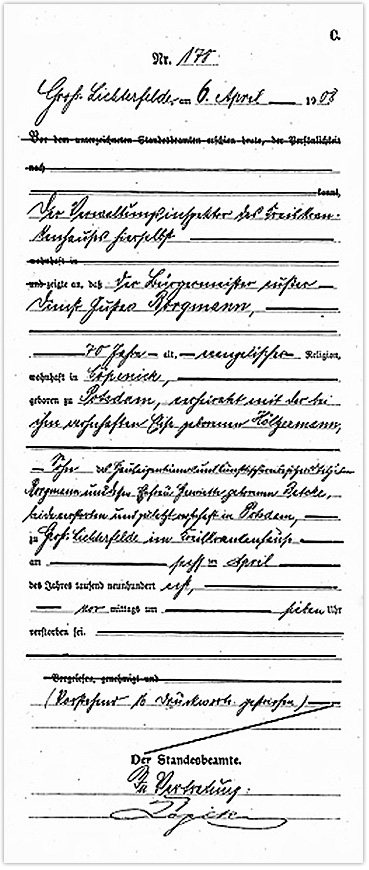 C.
Nr. 175
Groß-Lichterfelde, am 6. April 1908
Vor dem unterzeichneten Standesbeamten erschien heute, der Persönlichkeit
nach
kannt,
Der Verwaltungsinspektor des Kreiskran-
kenhauses hierselbst
wohnhaft in
und zeigte an, daß der Bürgermeister außer
Dienst Gustav Borgmann,
70 Jahre alt, evangelischer Religion,
wohnhaft in Cöpenick,
geboren zu Potsdam, verheiratet mit der bei
ihm wohnhaften Elise geborenen Hölzermann,
Sohn des Hauseigentümers und
Borgmann und dessen Ehefrau Henriette geborenen
beide verstorben und zuletzt wohnhaft in Potsdam,
zu Groß-Lichterfelde im Kreiskrankenhause
am sechsten April
des Jahres tausend neunhundert acht,
vor mittags um sieben Uhr
verstorben sei.
Vorgelesen, genehmigt und
(Vorstehend 16 Druckworte gestrichen)
Der Standesbeamte.
In Vertretung: